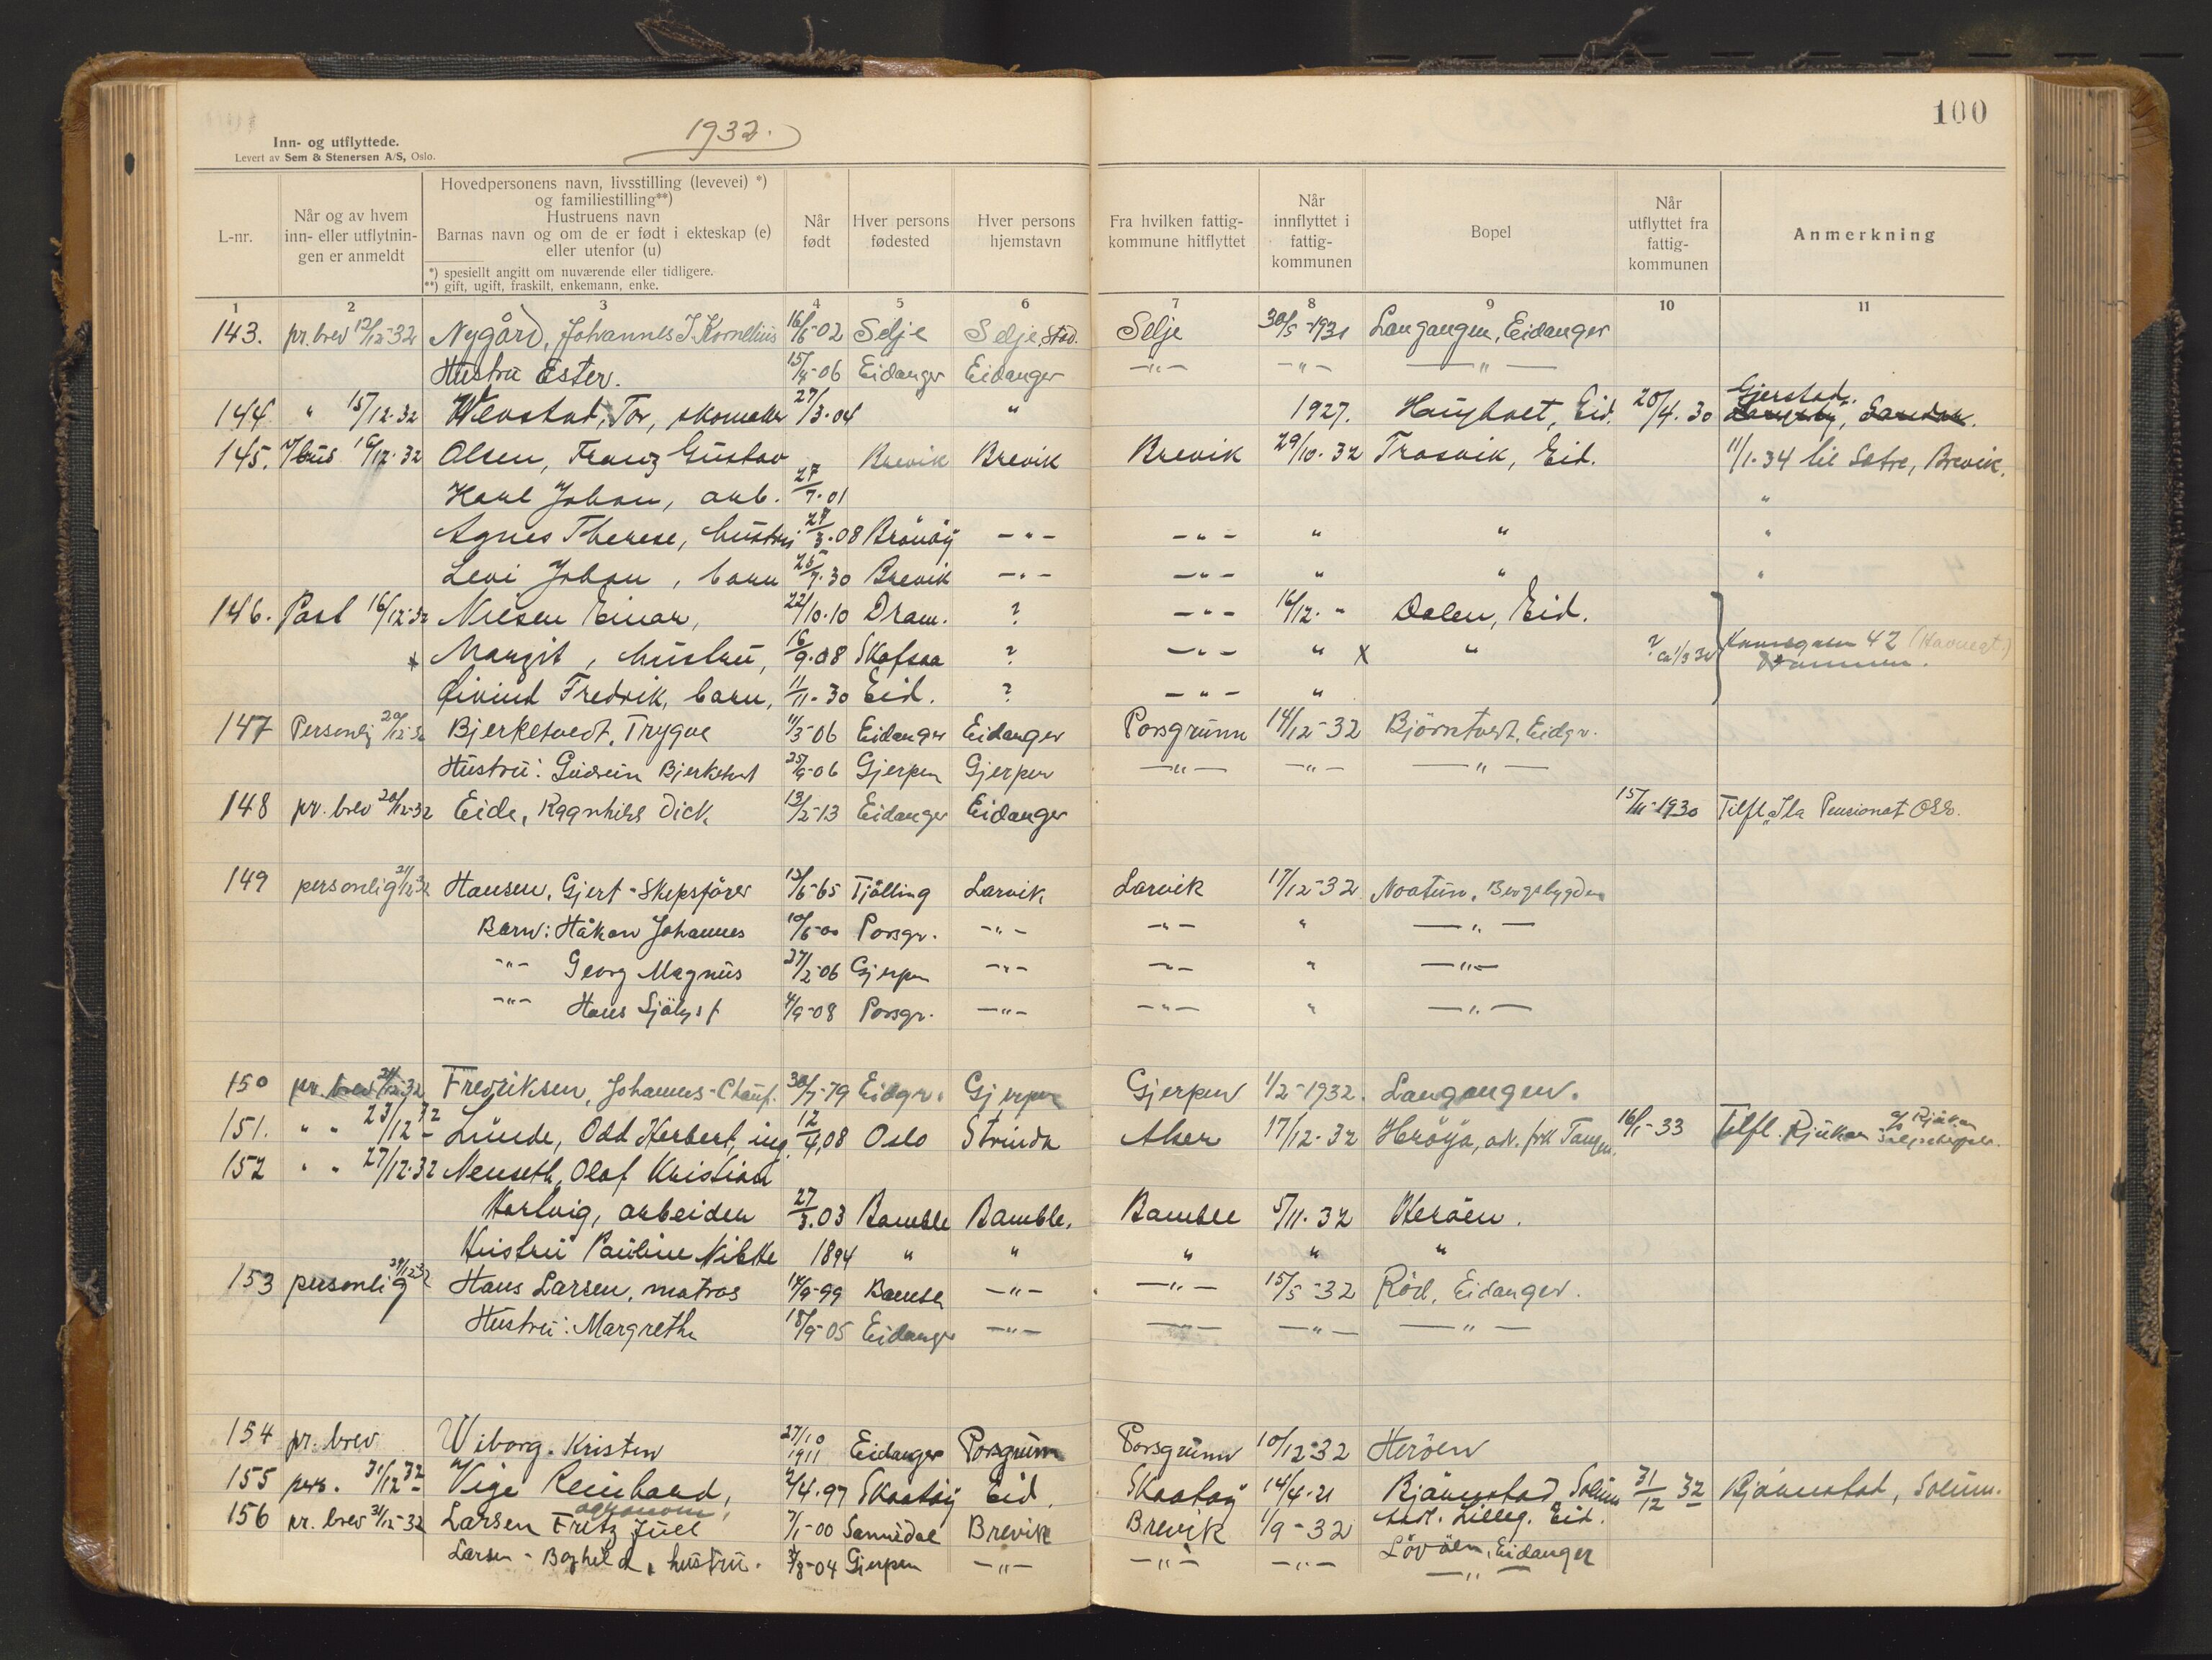 100
Inn- og utflyttede.
Levert av Sem & Stenersen A/S, Oslo.
1932.
L-nr.
Når og av hvem inn- eller utflytnin-gen er anmeldt
Hovedpersonens navn, livsstilling (levevei) *)
og familiestilling**)
Hustruens navn
Barnas navn og om de er født i ekteskap (e)
eller utenfor (u)
*) spesiellt angitt om nuværende eller tidligere.
**) gift, ugift, fraskilt, enkemann, enke.
Når født
Hver persons fødested
Hver persons hjemstavn
Fra hvilken fattig-kommune hitflyttet
Når innflyttet i fattig-kommunen
Bopel
Når utflyttet fra fattig-kommunen
Anmerkning
1 2 3 4 5 6 7 8 9 10 11
143. pr. brev 12/12-32 Nygård, Johannes J. Kornelius 16/6-02 Selje Selje, Stad. Selje 30/5-1931 Langangen, Eidanger
Hustru Ester. 15/4-06 Eidanger Eidanger -"- -"- -"-
144 " 15/12-32 Tor, skomaker 27/3-04 " 1927. Eid. 20/4. 30 Gjerstad.
145. 16/12-32 Olsen, Franz Gustav Brevik Brevik Brevik 29/10. 32 Trosvik, Eid. 11/1-34 til Sætre, Brevik.
Karl Johan, arb. 27/7-01 "
Agnes Therese, hustru 24/3.08 Brönöy -"- -"- " " "
Levi Johan, barn 25/7.30 Brevik -"- -"- " " "
146. Post 16/12-32 Nilsen Einar, 22/10.10 Dram. ? -"- 16/12. " Dalen, Eid.
x Margit, hustru, 16/9.08 Skafsaa ? -"- " x " ? ca 1/3 32 42 (Havnegt.)
Drammen.
Öivind Fredrik, barn, 11/11-30 Eid. ? -"- "
147 Personlig 20/12-32 Bjerketvedt, Trygve 11/3-06 Eidanger Eidanger Porsgrunn 14/12-32 Björntvedt, Eidgr.
Hustru: Gudrun Bjerketvet 25/9-06 Gjerpen Gjerpen -"- -"- -"-
148 pr. brev 20/12-32 Eide, Ragnhild Dick. 13/2-13 Eidanger Eidanger 15/11-1930 Tilfl. "Ila Pensionat Oslo.
149 personlig 21/12-32 Hansen, Gjert - Skepsförer 12/6-65 Tjölling Larvik Larvik 17/12-32 Noatun, Bergsbygden
Barn: Håkon Johannes 10/6-00 Porsgr. -"- -"- " -"-
-"- Georg Magnus 27/2-06 Gjerpen -"- -"- " -"-
-"- Hans Sjölyst 4/9-08 Porsgr. -"- -"- " -"-
150 pr. brev 21/12-32 Fredriksen, Johannes - Chauf. 30/7-79 Eidgr. Gjerpen Gjerpen 1/2-1932. Langangen.
151. " " 23/12-32 Lunde, Odd Herbert, ing. 12/4.08 Oslo Strinda Aker 17/12-32 Heröya, ad. frk Tangen. 16/1-33 Tilfl. Rjukan a/s Rjukan
152 " " 27/12-32 Nenseth, Olaf Kristian
Hartvig, arbeider 27/3.03 Bamble Bamble. Bamble 5/11-32 Heröen.
Hustru Pauline 1894 " " " " "
153 personlig 29/12-32 Hans Larsen, matros 14/9-99 Bamble -"- -"- 15/5-32 Röd, Eidanger.
Hustru: Margrethe 18/9-05 Eidanger -"- -"- -"- -"-
154 pr. brev Wiborg. Kristen 27/10 1911 Eidanger Porsgrunn Porsgrunn 10/12-32 Heröen
155 pers. 31/12-32 Vige Reinhard, 2/4.97 Skaatöy Eid. Skaatöy 14/4-21 Bjömstad Solum 31/12 32 Bjömstad, Solum.
agronom, Lilleg. Eid.
156 pr. brev 31/12-32 Larsen Fritz Juel 7/1-00 Sannidal Brevik Brevik 1/9-32 Lövöen, Eidanger
Larsen - Borghild, hustru. 3/8-04 Gjerpen -"- -"- -"- -"-